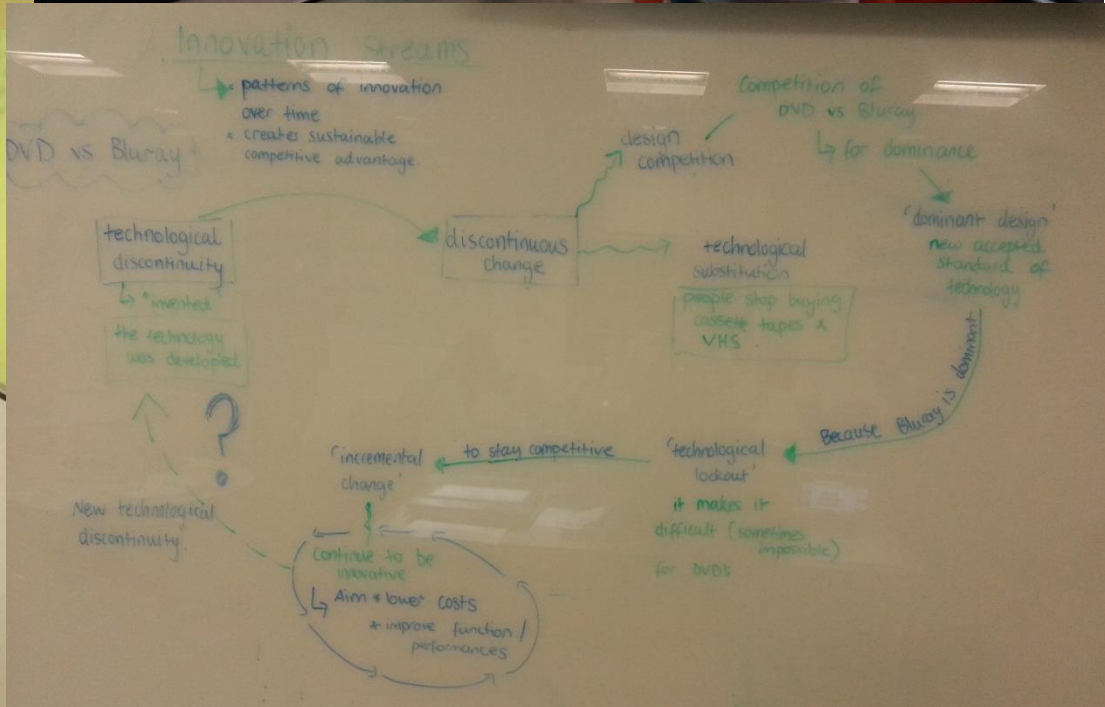 Innovation Streams
• patterns of innovation
over time
• creates sustainable
competitive advantage
DVD vs Bluray
technological
discontinuity
↳ "invented
the technology
was developed
discontinuous
change
design
competition
Competition of
DVD vs Bluray
↳ for dominance
technological
substitution
people stop buying
cassette tapes &
VHS.
'dominant design'
new accepted
standard of
technology
Because Bluray is dominant
'technological
lockout'
it makes it
difficult (sometimes
impossible)
for DVDs
to stay competitive
'incremental
change'
continue to be
innovative
↳ Aim * lower costs
* improve function /
performances
New technological
discontinuity
?